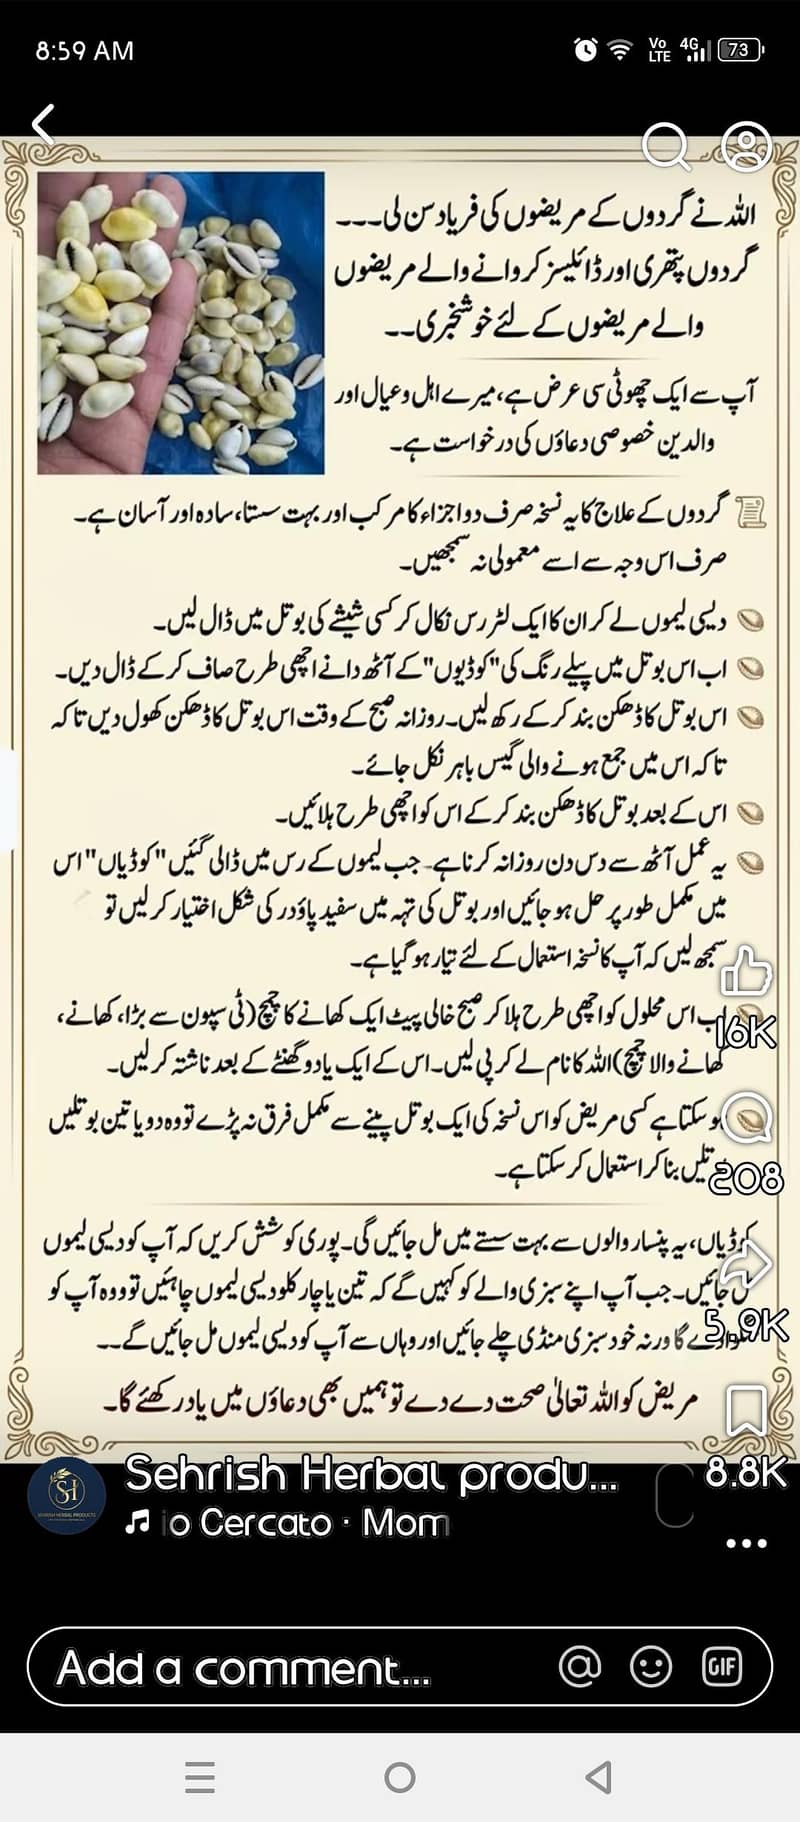 8:59 AM
Vo LTE 4G 73
اللہ نے گردوں کے مریضوں کی فریاد سن لی۔۔۔
گردوں پتھری اور ڈائلیسز کروانے والے مریضوں
والے مریضوں کے لئے خوشخبری۔۔
آپ سے ایک چھوٹی سی عرض ہے، میرے اہل و عیال اور
والدین خصوصی دعاؤں کی درخواست ہے۔
گردوں کے علاج کا یہ نسخہ صرف دو اجزاء کا مرکب اور بہت سستا، سادہ اور آسان ہے۔
صرف اس وجہ سے اسے معمولی نہ سمجھیں۔
دیسی لیموں لے کر ان کا ایک لٹر رس نکال کر کسی شیشے کی بوتل میں ڈال لیں۔
اب اس بوتل میں پیلے رنگ کی "کوڈیوں" کے آٹھ دانے اچھی طرح صاف کر کے ڈال دیں۔
اس بوتل کا ڈھکن بند کر کے رکھ لیں۔ روزانہ صبح کے وقت اس بوتل کا ڈھکن کھول دیں تا کہ
تا کہ اس میں جمع ہونے والی گیس باہر نکل جائے۔
اس کے بعد بوتل کا ڈھکن بند کر کے اس کو اچھی طرح ہلائیں۔
یہ عمل آٹھ سے دس دن روزانہ کرنا ہے۔ جب لیموں کے رس میں ڈالی گئیں "کوڈیاں" اس
میں مکمل طور پر حل ہو جائیں اور بوتل کی تہہ میں سفید پاؤدر کی شکل اختیار کر لیں تو
سمجھ لیں کہ آپ کا نسخہ استعمال کے لئے تیار ہو گیا ہے۔
اب اس محلول کو اچھی طرح ہلا کر صبح خالی پیٹ ایک کھانے کا چمچ (ٹی سپون سے بڑا، کھانے،
کھانے والا چمچ) اللہ کا نام لے کر پی لیں۔ اس کے ایک یا دو گھنٹے کے بعد ناشتہ کر لیں۔
ہو سکتا ہے کسی مریض کو اس نسخہ کی ایک بوتل پینے سے مکمل فرق نہ پڑے تو وہ دو یا تین بوتلیں
بنا کر استعمال کر سکتا ہے۔
کوڈیاں، یہ پنسار والوں سے بہت سستے میں مل جائیں گی۔ پوری کوشش کریں کہ آپ کو دیسی لیموں
جائیں۔ جب آپ اپنے سبزی والے کو کہیں گے کہ تین یا چار کلو دیسی لیموں چاہئیں تو وہ آپ کو
گا ورنہ خود سبزی منڈی چلے جائیں اور وہاں سے آپ کو دیسی لیموں مل جائیں گے۔۔
مریض کو اللہ تعالیٰ صحت دے دے تو ہمیں بھی دعاؤں میں یاد رکھئے گا۔
16K
208
5.9K
8.8K
SH
Sehrish Herbal produ...
o Cercato · Mom
Add a comment...
GIF